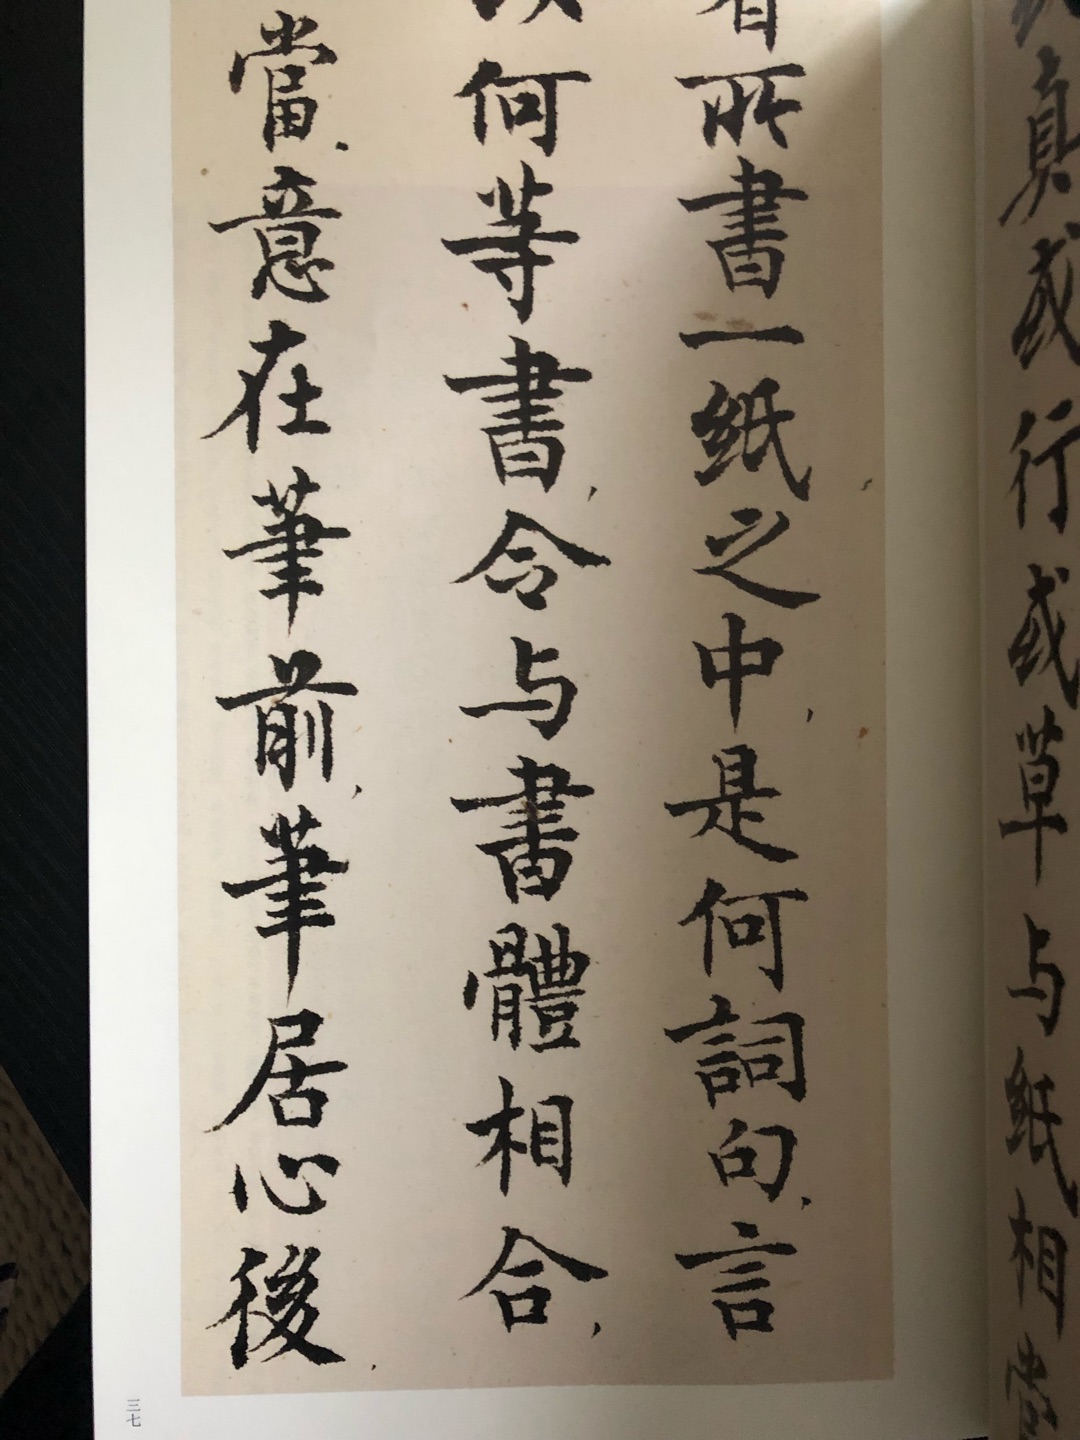 真或行或草与紙相當
看所書一紙之中，是何詞句，言
以何等書，令与書體相合，
當，意在筆前，筆居心後，
三七